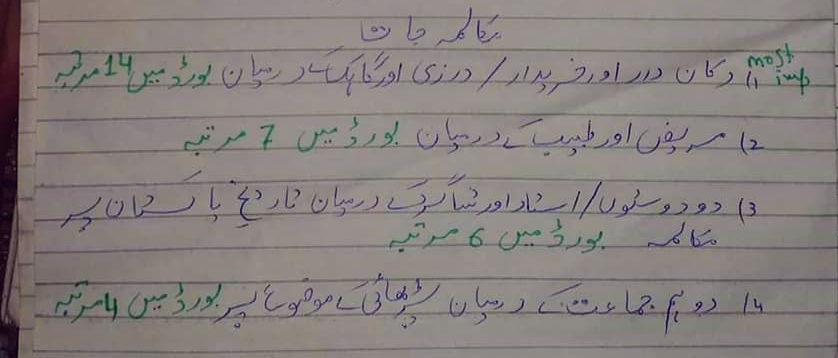 مکالمہ جات
most imp 1) دکان دار اور خریدار / درزی اور گاہک کے درمیان بورڈ میں 14 مرتبہ
2) مریض اور طبیب کے درمیان بورڈ میں 7 مرتبہ
3) دو دوستوں / استاد اور شاگرد کے درمیان تاریخ پاکستان پر
مکالمہ بورڈ میں 6 مرتبہ
4) دو ہم جماعت کے درمیان پڑھائی کے موضوع پر بورڈ میں 4 مرتبہ